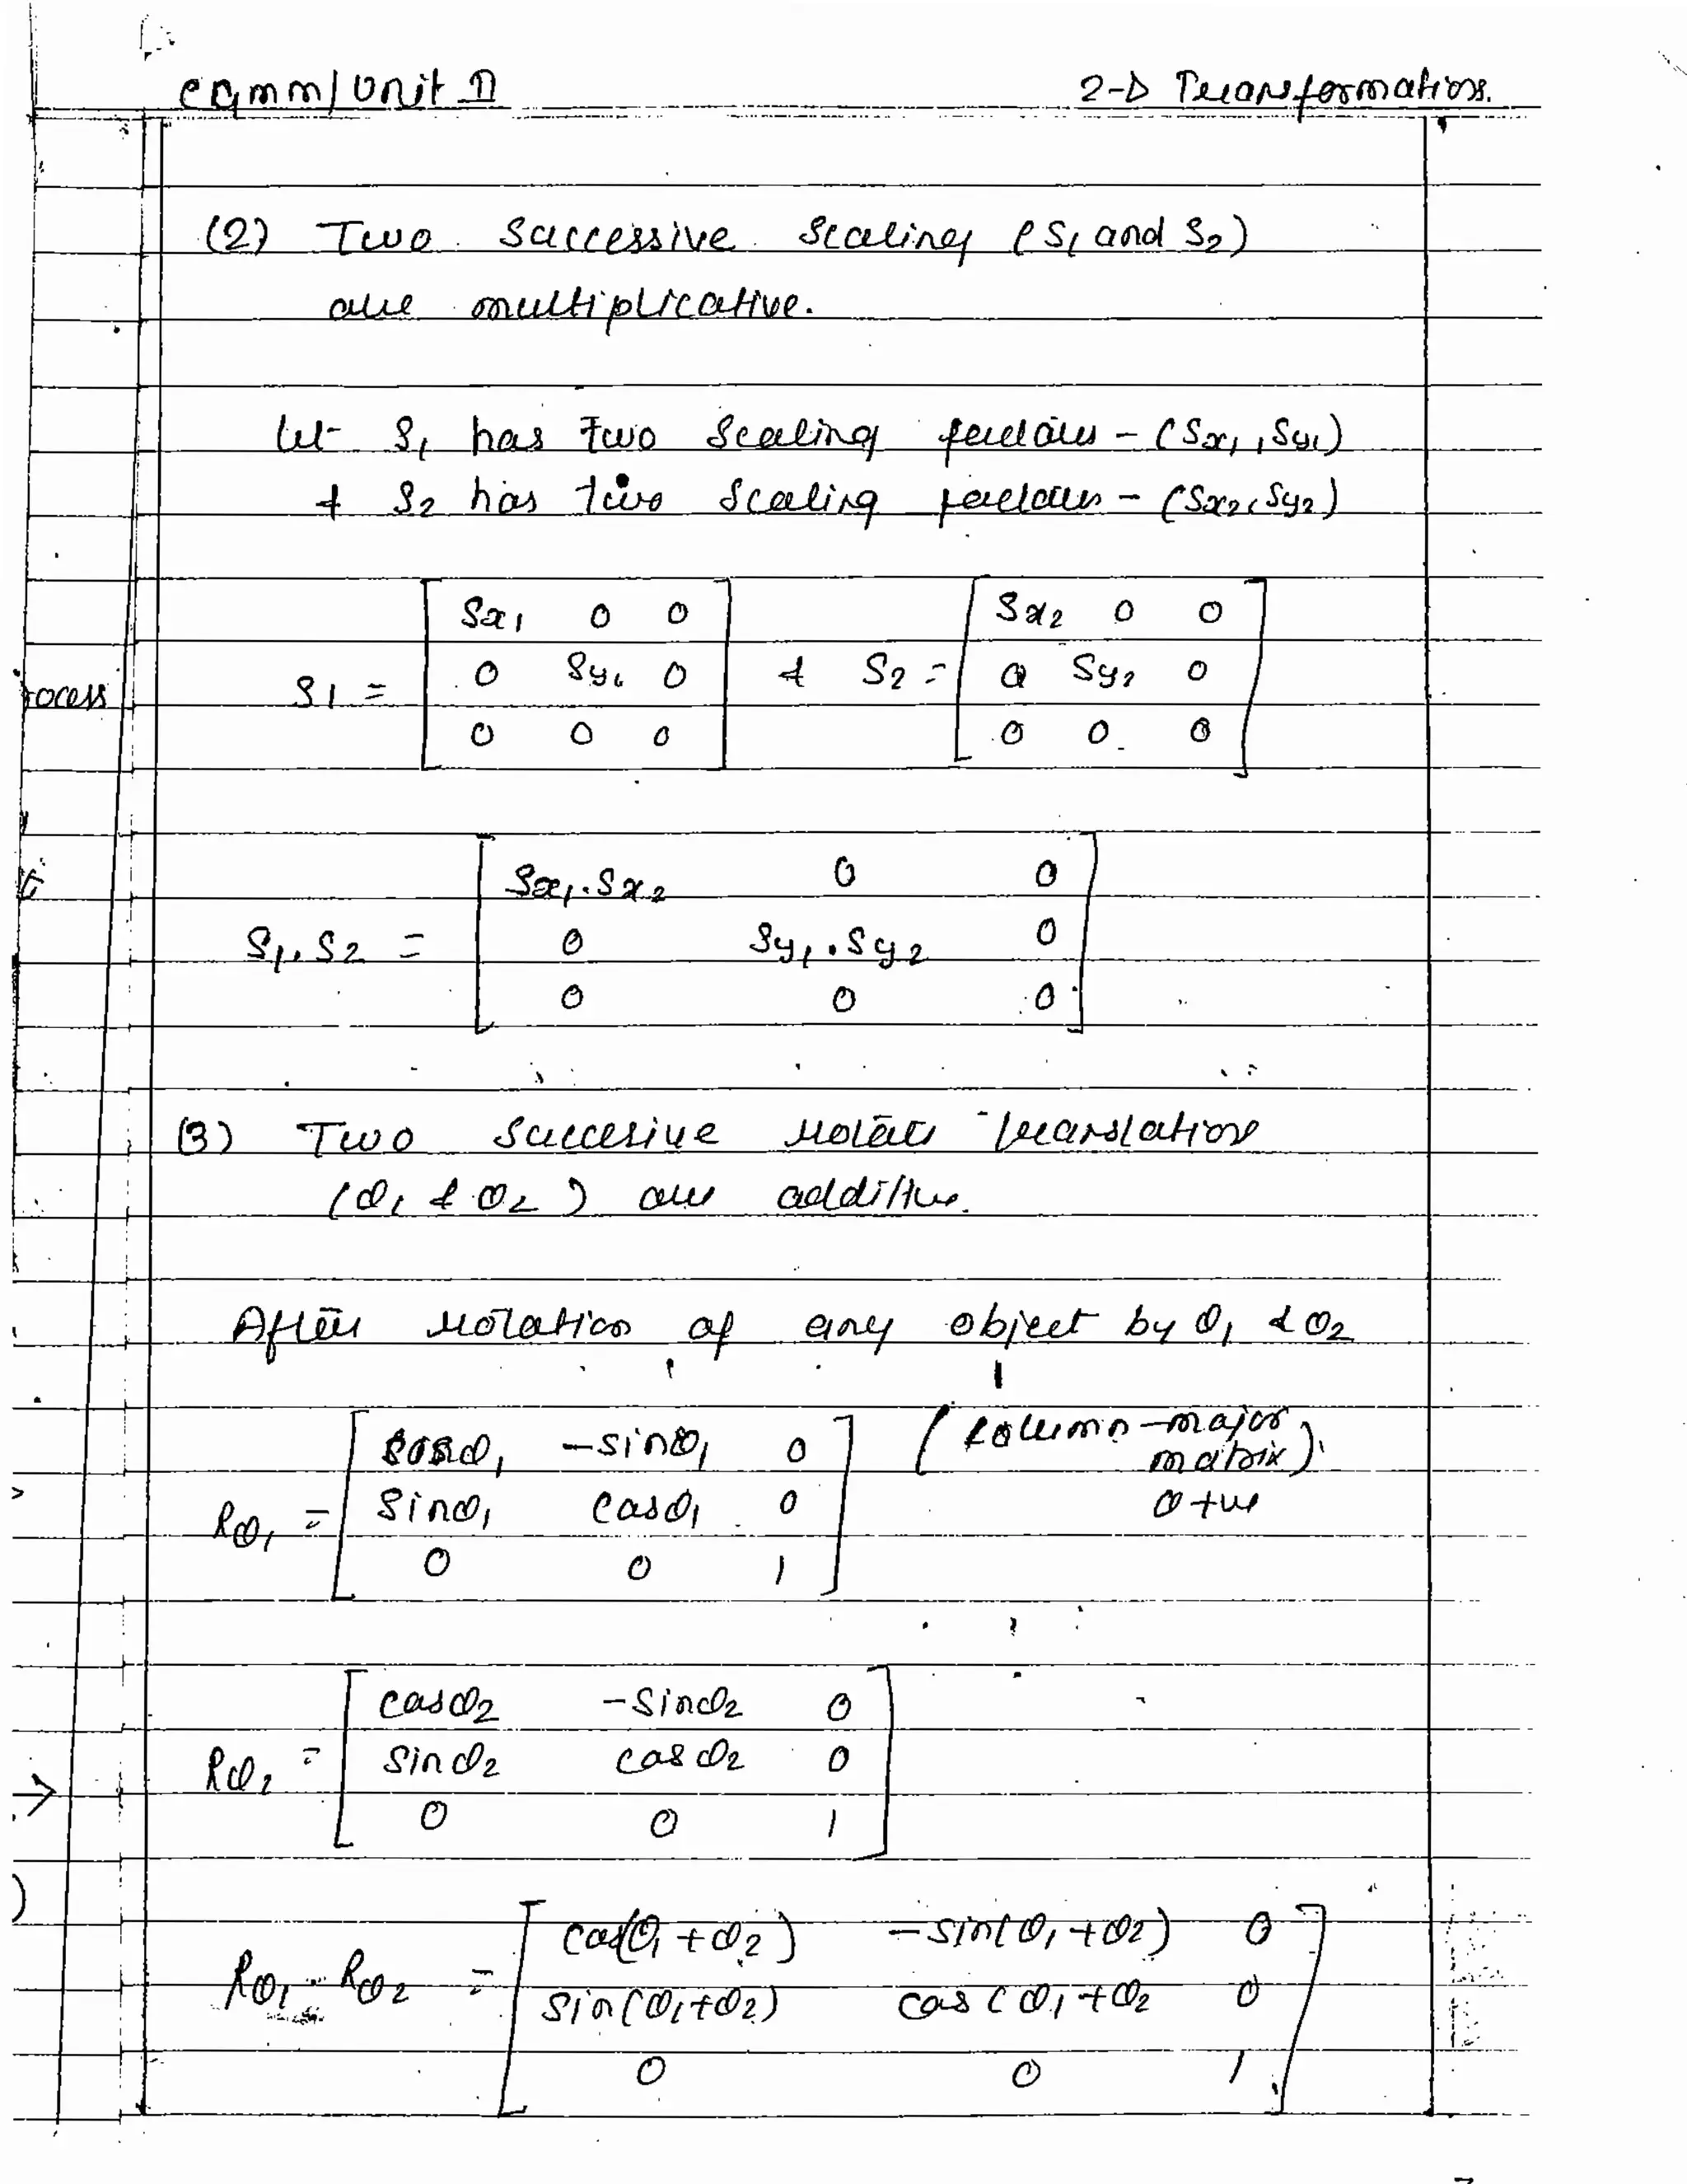 CGMM/Unit II 2-D Transformations.
(2) Two Successive Scaling (S1 and S2)
are multiplicative.
let S1 has two Scaling factors - (Sx1, Sy1)
& S2 has two Scaling factors - (Sx2, Sy2)
Sx1 0 0 Sx2 0 0
ocess S1 = 0 Sy1 0 & S2 = 0 Sy2 0
0 0 0 0 0 0
Sx1.Sx2 0 0
S1.S2 = 0 Sy1.Sy2 0
0 0 0
(3) Two Succesive rotate translation
(θ1 & θ2) are additive.
After rotation of any object by θ1 & θ2
cosθ1 -sinθ1 0 (column-major
matrix)
Rθ1 = sinθ1 cosθ1 0 θ +ve
0 0 1
cosθ2 -sinθ2 0
Rθ2 = sinθ2 cosθ2 0
0 0 1
cos(θ1+θ2) -sin(θ1+θ2) 0
Rθ1.Rθ2 = sin(θ1+θ2) cos(θ1+θ2 0
0 0 1